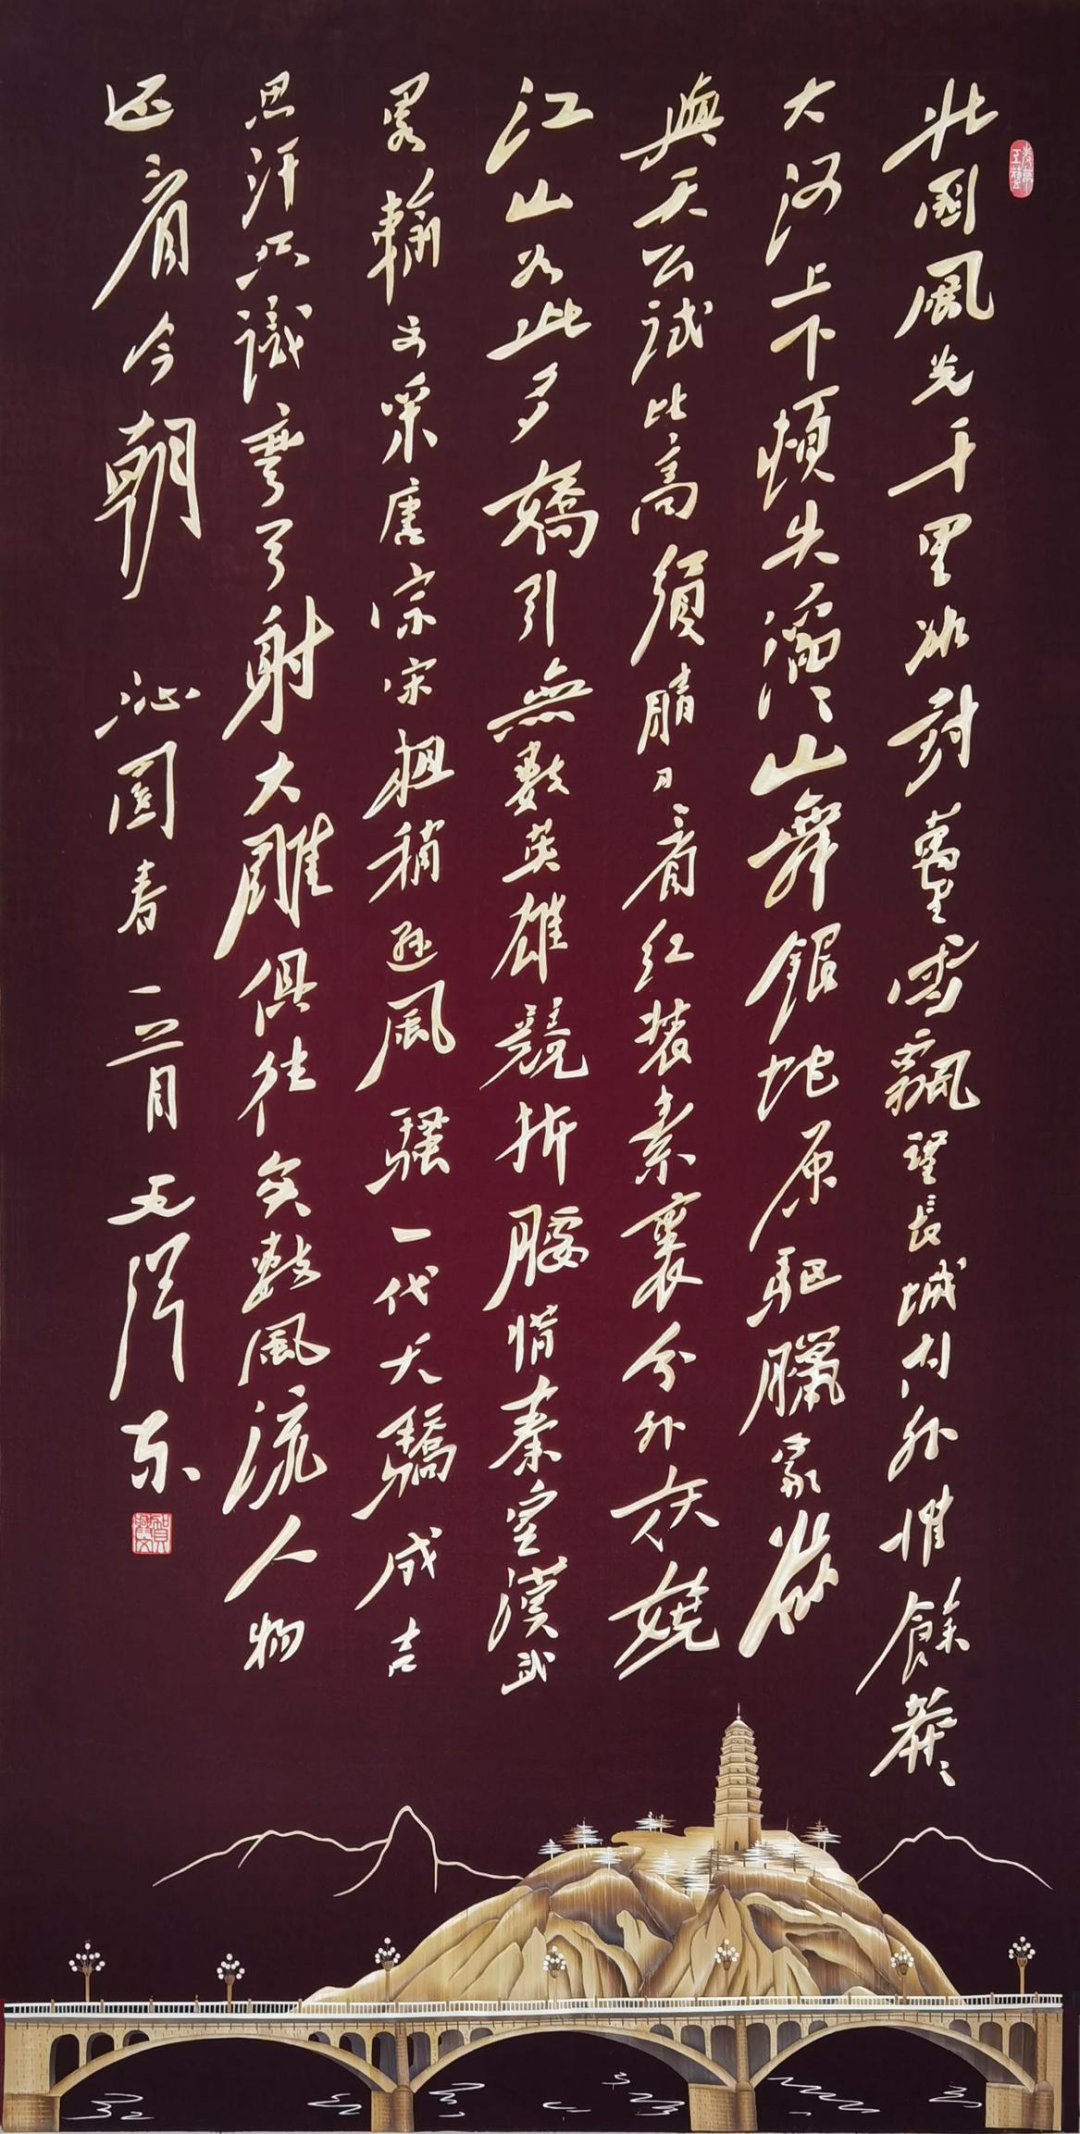 北國風光千里冰封萬里雪飄望長城内外惟餘莽々
大河上下頓失滔々山舞銀蛇原驅臘象欲
與天公試比高須晴日看红装素裹分外妖嬈
江山如此多嬌引無數英雄競折腰惜秦皇漢武
畧輸文采唐宗宋祖稍遜風騷一代天驕成吉
思汗只識彎弓射大雕俱往矣數風流人物
还看今朝 沁園春 毛澤东